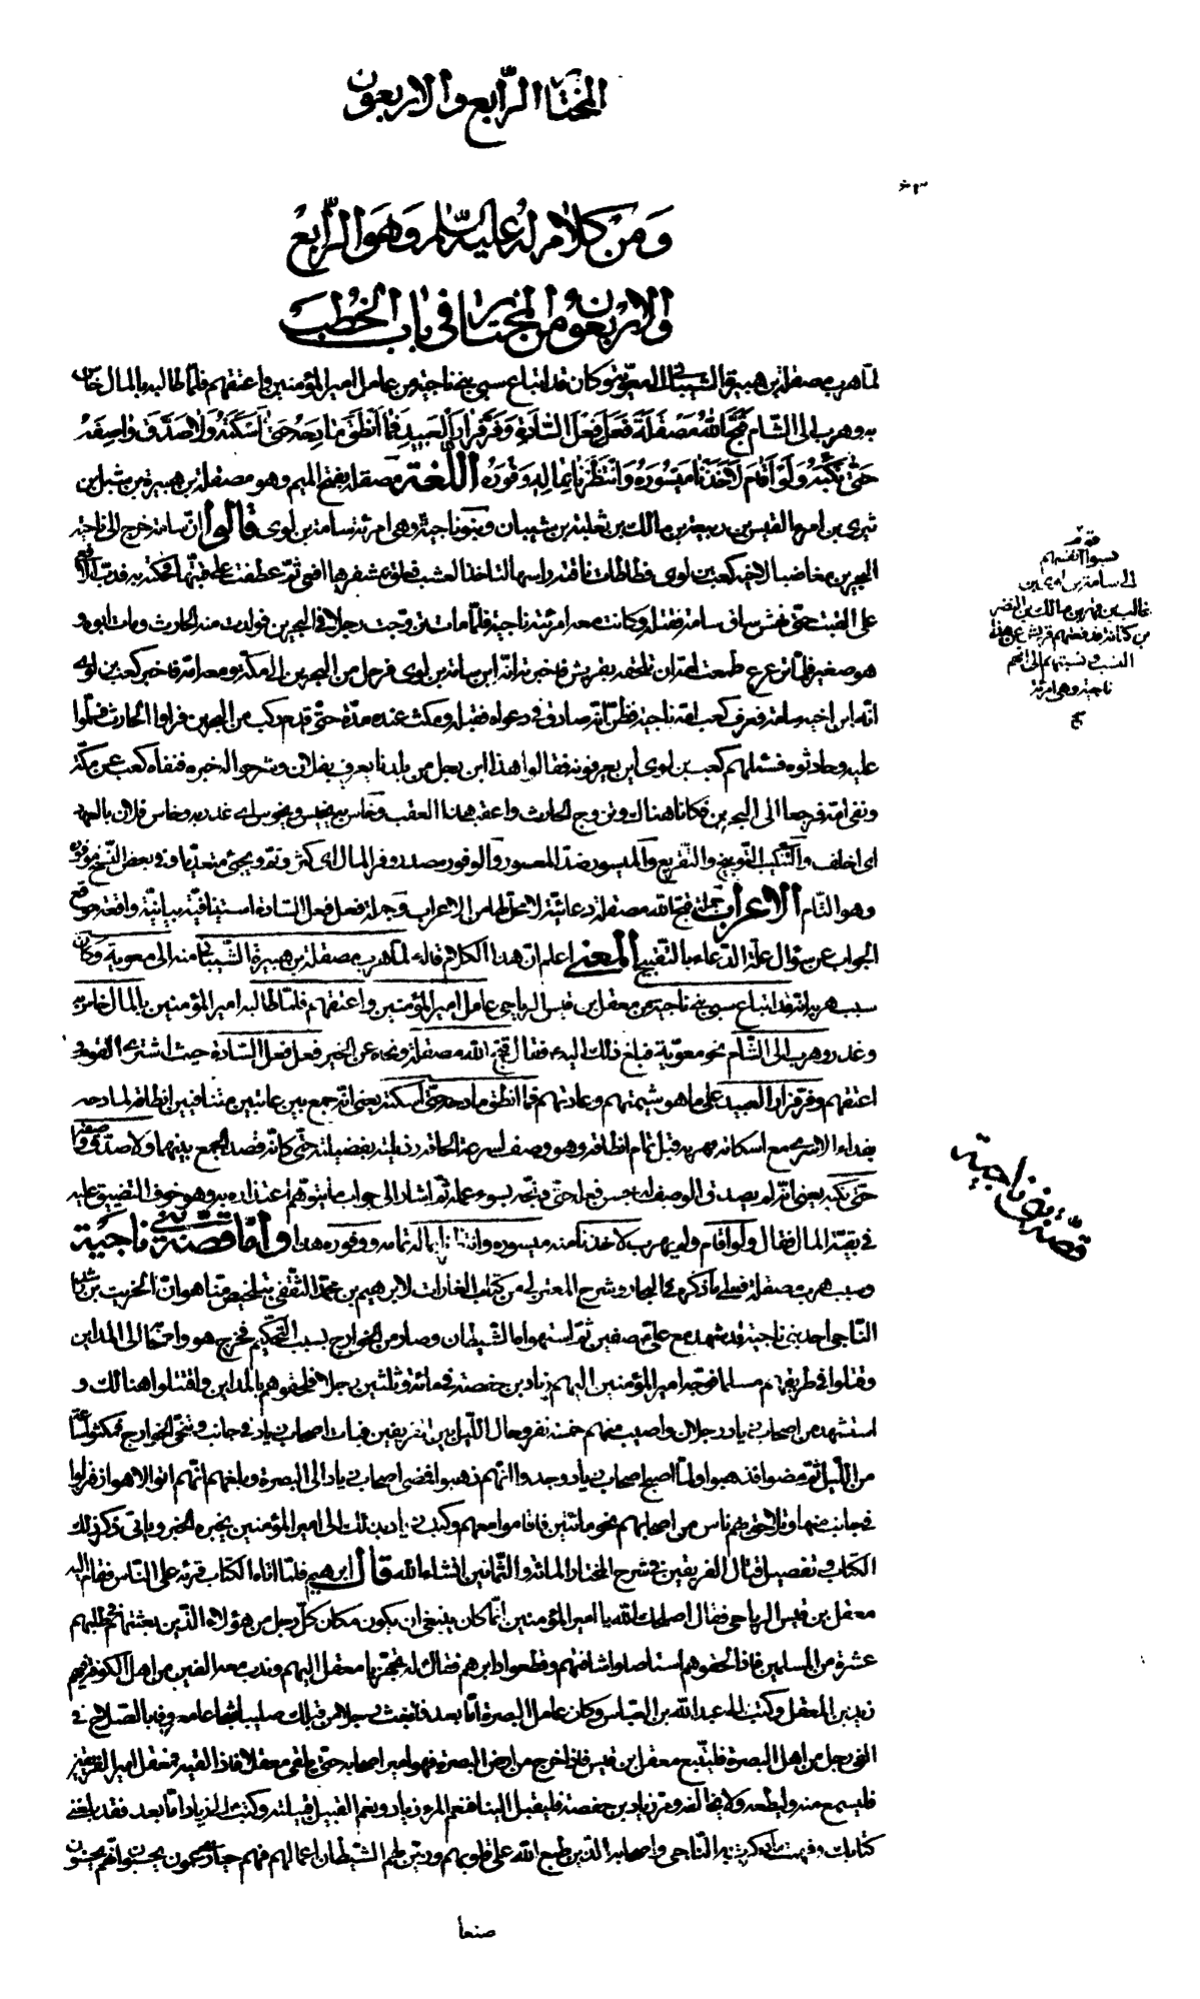 المختار الرابع والاربعون
ومن كلام له عليه السلم وهو الرابع
والاربعون من المختار فى باب الخطب
لما هرب مصقلة بن هبيرة الشيبانى الى معوية وكان قد ابتاع سبى بنى ناجية من عامل امير المؤمنين واعتقهم فلما طالبه بالمال خاس
به وهرب الى الشام قبح الله مصقلة فعل فعل السادة وفر فرار العبيد فما انطق مادحه حتى اسكته ولا صدق واصفه
حتى بكته ولو اقام لاخذنا ميسوره وانتظرنا بماله وفوره اللغة مصقلة بفتح الميم وهو مصقلة بن هبيرة بن شبل بن
يثرى بن امرء القيس بن ربيعة بن مالك بن ثعلبة بن شيبان وبنو ناجية وهى امرئة سامة بن لوى قالوا ان سامة خرج الى ناحية
البحرين مغاضبا لاخيه كعب بن لوى فطاطات ناقته راسها لتاخذ العشب فعلق بمشفرها افعى ثم عطفت على قتبها فحكته به فدب الافعى
على القتب حتى نهش ساق سامة فقتله وكانت معه امرئته ناجية فلما مات تزوجت رجلا فى البحرين فولدت منه الحارث ومات ابوه و
هو صغير فلما ترعرع طمعت امه ان تلحقه بقريش فاخبرته انه ابن سامة بن لوى فرحل من البحرين الى مكة ومعه امه فاخبر كعب بن لوى
انه ابن اخيه سامة فعرف كعب امه ناجية فظن انه صادق فى دعواه فقبله ومكث عنده مدة حتى قدم ركب من البحرين فراوا الحارث فسلموا
عليه وحادثوه فسئلهم كعب بن لوى اين يعرفونه فقالوا هذا ابن رجل من بلدنا يعرف بفلان وشرحوا له خبره فنفاه كعب عن مكة
ونفى امه فرجعا الى البحرين فكانا هناك وتزوج الحارث واعقب هذا العقب وخاس به يخيس ويخوس اى غدر به وخاس فلان بالعهد
اى اخلف والتبكيت التوبيخ والتقريع والميسور ضد المعسور والوفور مصدر وفر المال اى كثر وتم ويجئ متعديا وفى بعض النسخ موفوره
وهو التام الاعراب جملة قبح الله مصقلة دعائية لا محل لها من الاعراب وجملة فعل فعل السادة استينافية بيانية واقعة موقع
الجواب عن سؤال علة الدعاء بالتقبيح المعنى اعلم ان هذا الكلام قاله لما هرب مصقلة بن هبيرة الشيبانى منه الى معوية وكان
سبب هربه انه قد ابتاع سبى بنى ناجية من معقل بن قيس الرياحى عامل امير المؤمنين واعتقهم فلما طالبه امير المؤمنين بالمال خاس به
وغدر وهرب الى الشام نحو معوية فبلغ ذلك اليه فقال قبح الله مصقلة ونحاه عن الخير فعل فعل السادة حيث اشترى القوم و
اعتقهم وفر فرار العبيد على ما هو شيمتهم وعادتهم فما انطق مادحه حتى اسكته يعنى انه جمع بين غايتين متنافيين انطاقه لمادحه
بفداء الاسرى مع اسكاته بهربه قبل تمام انطاقه وهو وصف لسرعة الحاقه رذيلته بفضيلته حتى كانه قصد الجمع بينهما ولا صدق واصفه
حتى بكته يعنى انه لم يصدق الواصف له بحسن فعله حتى وبخه بسوء عمله ثم اشار الى جواب ما يتوهم اعتذاره به وهو خوف التضييق عليه
فى بقية المال فقال ولو اقام ولم يهرب لاخذنا منه ميسوره وانتظرنا بماله تمامه ووفوره هذا واما قصة بنى ناجية
وسبب هرب مصقلة فعلى ما ذكره فى البحار وشرح المعتزلى من كتاب الغارات لابرهيم بن محمد الثقفى بتلخيص منا هو ان الخريت بن راشد
الناجى احد بنى ناجية قد شهد مع على صفين ثم استهواه الشيطان وصار من الخوارج بسبب التحكيم فخرج هو واصحابه الى المداين
وقتلوا فى طريقهم مسلما فوجه امير المؤمنين اليهم زياد بن خصفة فى مائة وثلثين رجلا فلحقوهم بالمداين واقتتلوا هنالك و
استشهد من اصحاب زياد رجلان واصيب منهم خمسة نفر وحال الليل بين الفريقين فبات اصحاب زياد فى جانب وتنحى الخوارج فمكثوا ساعة
من الليل ثم مضوا فذهبوا ولما اصبح اصحاب زياد وجدوا انهم ذهبوا فمضى اصحاب زياد الى البصرة وبلغهم انهم اتوا الاهواز فنزلوا
فى جانب منها وتلاحق بهم ناس من اصحابهم نحو مائتين فاقاموا معهم وكتب زياد بذلك الى امير المؤمنين يخبره الخبر وياتى ذكر ذلك
الكتاب وتفصيل قتال الفريقين فى شرح المختار المائة والثمانين انشاء الله قال ابرهيم فلما اتاه الكتاب قرئه على الناس فقام اليه
معقل بن قيس الرياحى فقال اصلحك الله يا امير المؤمنين انما كان ينبغى ان يكون مكان كل رجل من هؤلاء الذين بعثتهم فى طلبهم
عشرة من المسلمين فاذا لحقوهم استاصلوا شافتهم وقطعوا دابرهم فقال له تجهز يا معقل اليهم وندب معه الفين من اهل الكوفة فيهم
يزيد بن المعقل وكتب الى عبد الله بن العباس وكان عامل البصرة اما بعد فابعث رجلا من قبلك صليبا شجاعا معروفا بالصلاح فى
الفى رجل من اهل البصرة فليتبع معقل بن قيس فاذا خرج من ارض البصرة فهو امير اصحابه حتى يلقى معقلا فاذا لقيه فمعقل امير الفريقين
فليسمع منه وليطعه ولا يخالفه ومر زياد بن خصفة فليقبل الينا فنعم المرء زياد ونعم القبيل قبيلته وكتب الى زياد اما بعد فقد بلغنى
كتابك وفهمت ما ذكرت به الناجى واصحابه الذين طبع الله على قلوبهم وزين لهم الشيطان اعمالهم فهم حيارى عمون يحسبون انهم يحسنون
صنعا
نسبوا انفسهم
الى سامة بن لوى بن
غالب بن فهر بن مالك بن النضر
بن كنانة فدفعتهم قريش عن هذا
النسب ونسبتهم الى امهم
ناجية وهى امرئة
قصة بنى ناجية